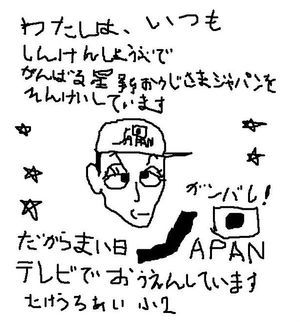 わたしは、いつも
しんけんしょうぶで
がんばる星野おうじさまジャパンを
そんけいしています
JAPAN
ガンバレ!
だからまい日
JAPAN
テレビでおうえんしています
たけうちあい ふ2